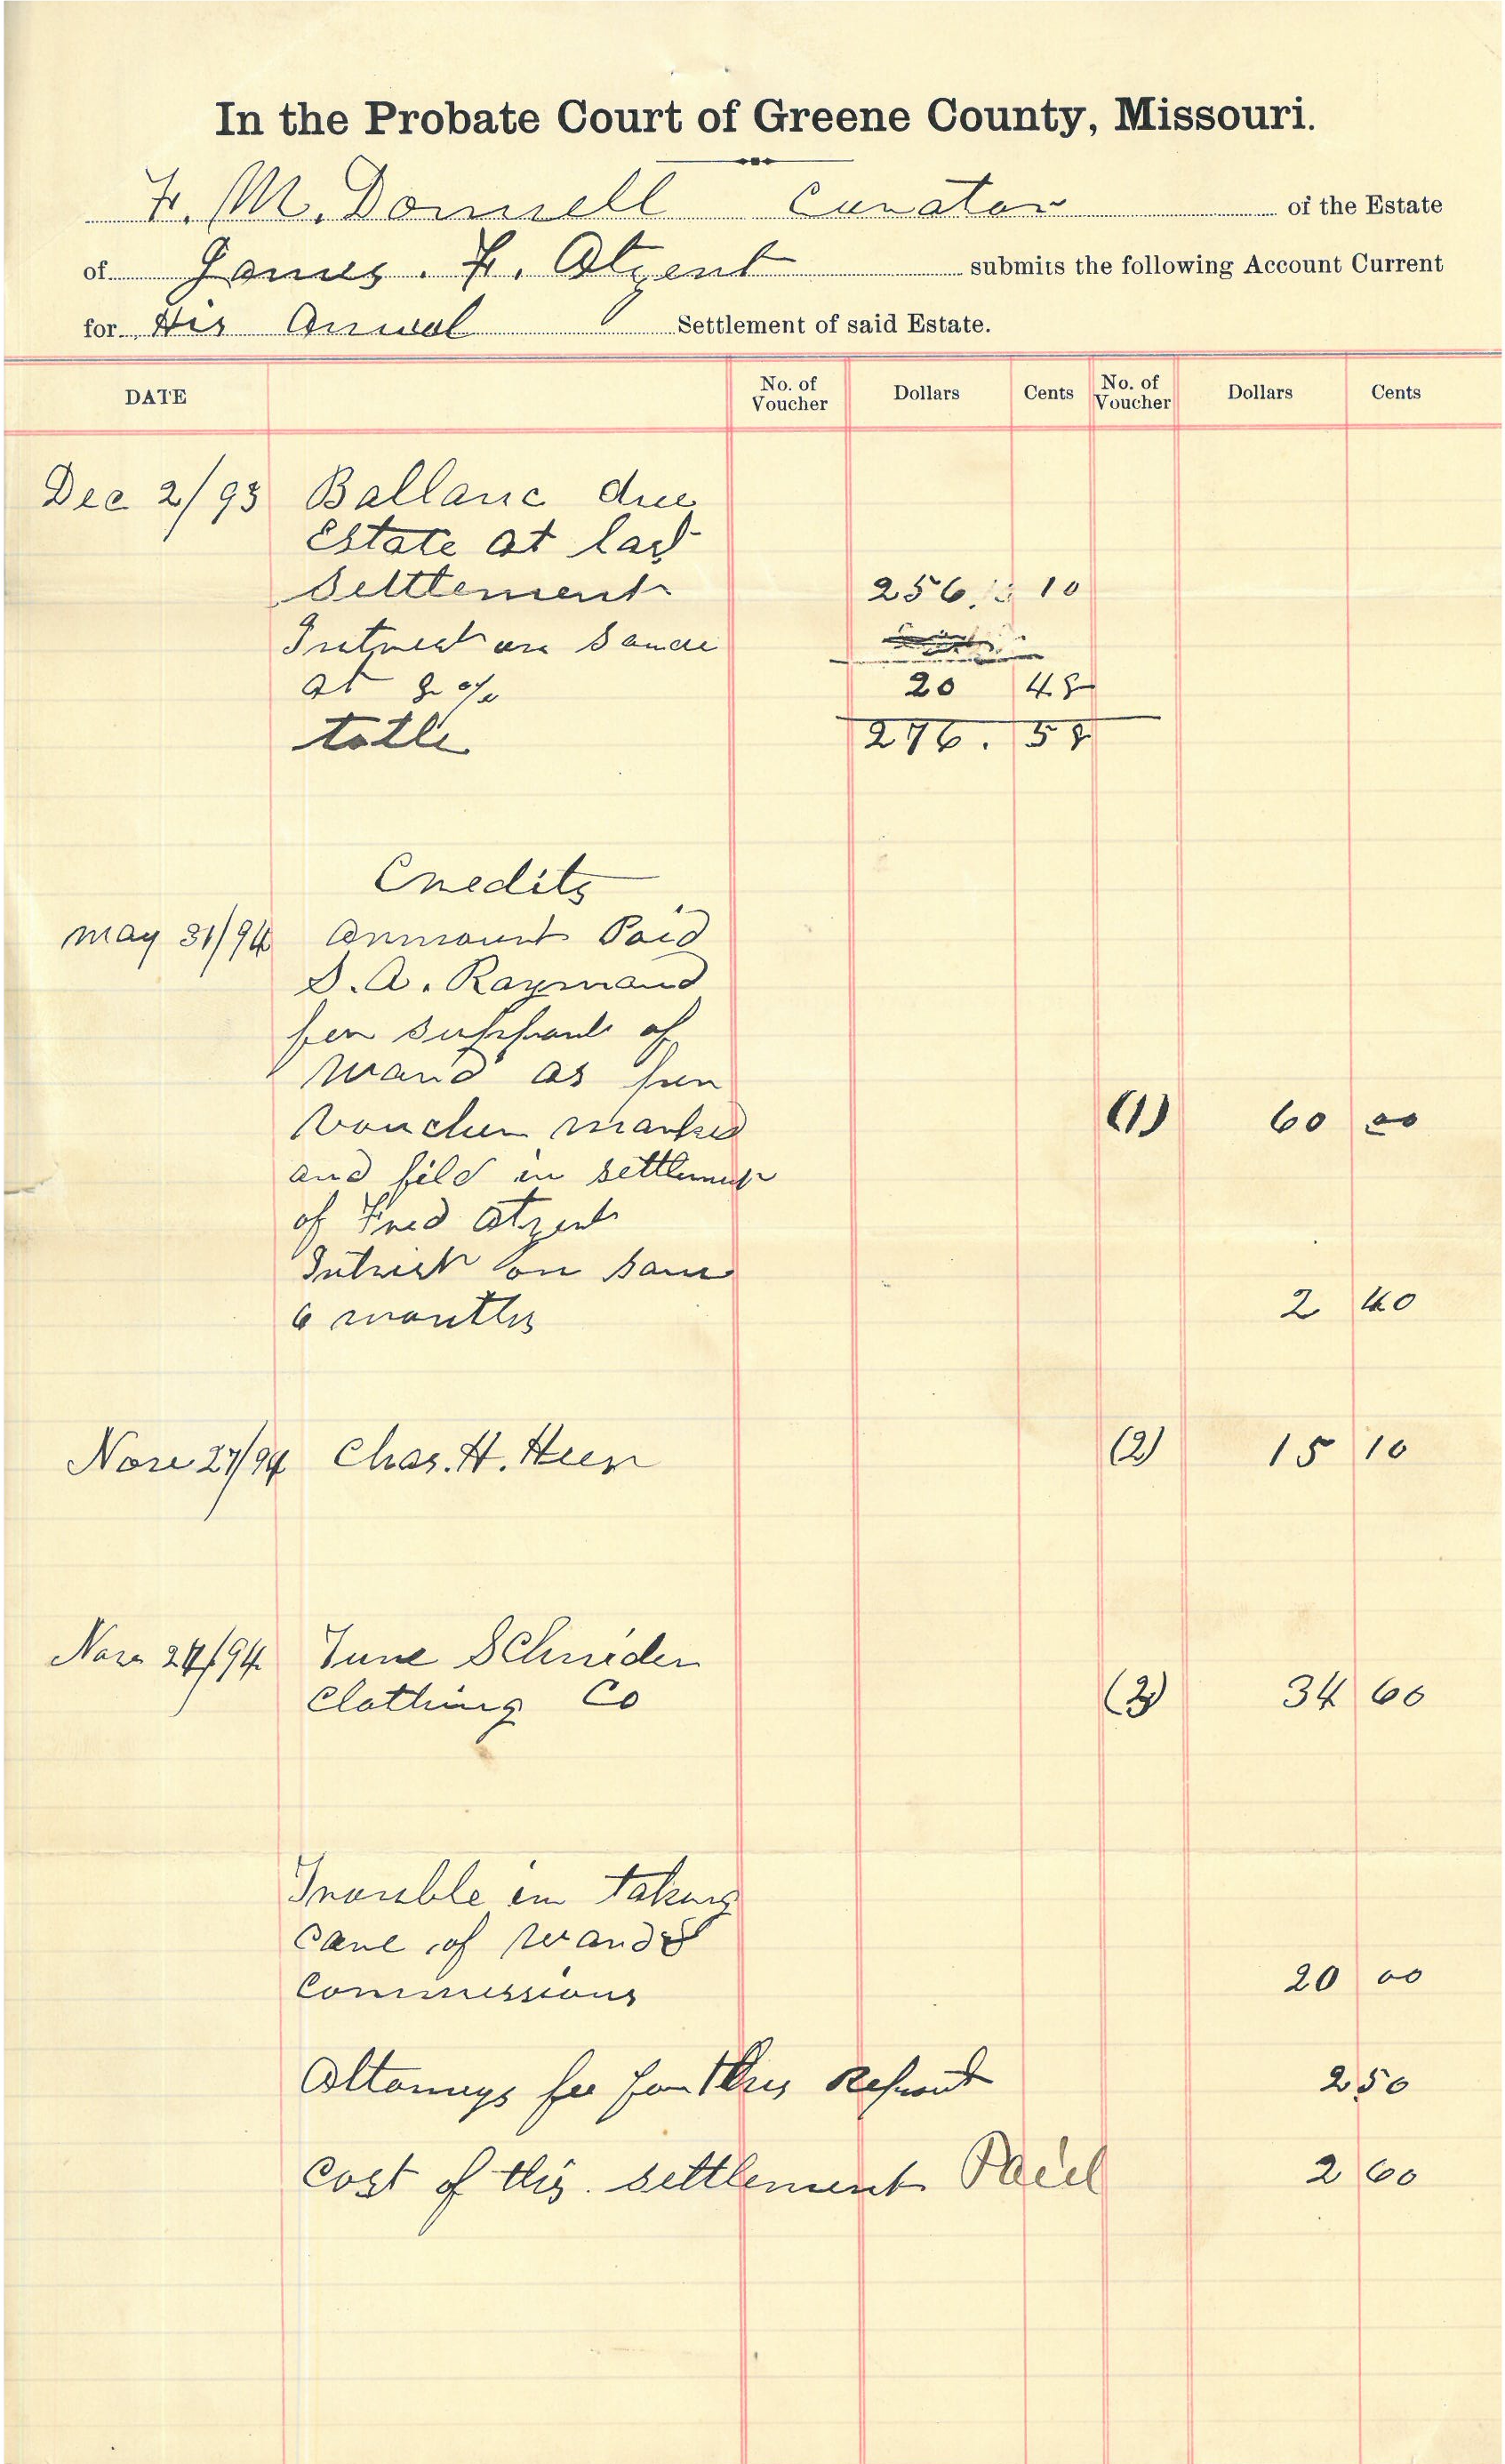 In the Probate Court of Greene County, Missouri.
F. M. Donnell Curator of the Estate
of James. F. Atzent submits the following Account Current
for His Anual Settlement of said Estate.
DATE No. of Voucher Dollars Cents No. of Voucher Dollars Cents
Dec 2/93 Ballanc due
Estate at last
Settlement 256. 10
Intrest on Same
at 8 % 20 48
totle 276. 58
Credits
May 31/94 Ammount Paid
S. A. Raymond
for support of
Ward as per
Voucher marked (1) 60 00
and fild in settlement
of Fred Atzent
Intrest on same
6 months 2 40
Nov 27/94 Chas. H. Heer (2) 15 10
Nov 24/94 June Schnider
Clothing Co (3) 34 60
Trouble in taking
care of ward &
Commissions 20 00
Attorneys fee for this Report 2 50
cost of this settlement Paid 2 60